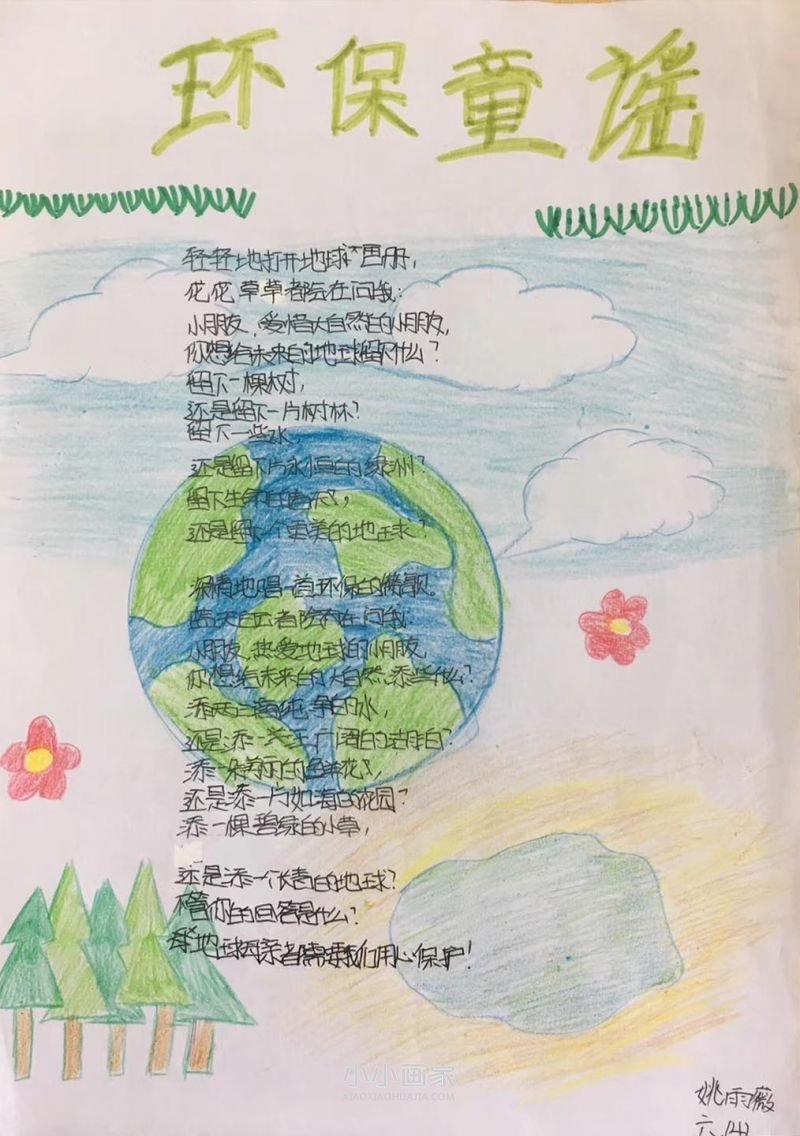 环保童谣
轻轻地打开地球大画册，
花花草草都会在问我：
小朋友，爱惜大自然的小朋友，
你想给未来的地球留下什么？
留下一棵树，
还是留下一片树林？
留下一些水，
还是留下片永恒的绿洲？
留下生命的春天，
还是留下一个更美的地球？
深情地唱一首环保的赞歌。
蓝天白云都会在问我：
小朋友，热爱地球的小朋友，
你想给未来的大自然添些什么？
添两三滴纯净的水，
还是添一 广阔的 ？
添一朵美丽的鲜花，
还是添一片如海的花园？
添一棵碧绿的小草，
还是添一个长青的地球？
不管你的回答是什么？
地球母亲都需要我们用心保护！
小小画家
XIAOXIAOHUAJIA.COM
姚雨薇
六